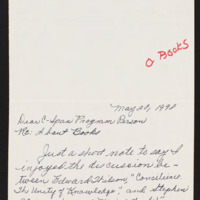 O BOOKS
May 20, 1998
Dear C-Span Program Person
Re: About Books
Just a short note to say I
enjoyed the discussion be-
tween Edward Wilson, "Consilience
The Unity of Knowledge," and Stephen